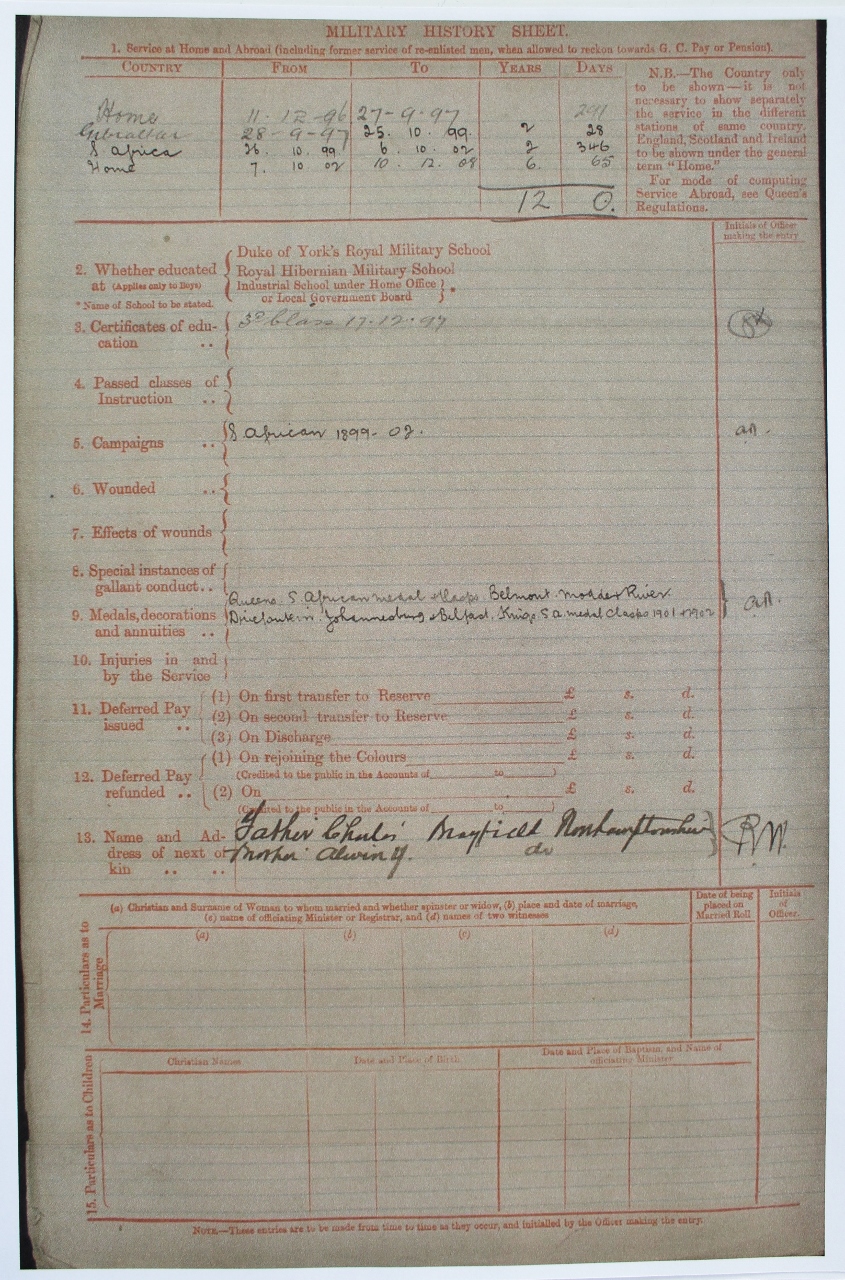 MILITARY HISTORY SHEET.
1. Service at Home and Abroad (including former service of re-enlisted men, when allowed to reckon towards G. C. Pay or Pension).
COUNTRY FROM TO YEARS DAYS
Home 11-12-96 27-9-97 291
Gibraltar 28-9-97 25. 10. 99. 2 28
S Africa 26. 10. 99. 6. 10. 02 2 346
Home 7. 10 02 10. 12. 08 6. 65
12 0.
N.B.—The Country only
to be shown—it is not
necessary to show separately
the service in the different
stations of same country.
England, Scotland and Ireland
to be shown under the general
term "Home."
For mode of computing
Service Abroad, see Queen's
Regulations.
Initials of Officer
making the entry
2. Whether educated
at (Applies only to Boys)
* Name of School to be stated.
Duke of York's Royal Military School
Royal Hibernian Military School
Industrial School under Home Office
or Local Government Board } *
3. Certificates of edu-
cation ..
3º Class 17.12.97
4. Passed classes of
Instruction ..
5. Campaigns ..
S African 1899-02.
6. Wounded ..
7. Effects of wounds
8. Special instances of
gallant conduct..
9. Medals, decorations
and annuities ..
Queens S. African medal Clasps Belmont. Modder River.
Driefontein. Johannesburg & Belfast. Kings S.A. medal Clasps 1901 & 1902
10. Injuries in and
by the Service
11. Deferred Pay
issued ..
(1) On first transfer to Reserve £ s. d.
(2) On second transfer to Reserve £ s. d.
(3) On Discharge £ s. d.
12. Deferred Pay
refunded ..
(1) On rejoining the Colours £ s. d.
(Credited to the public in the Accounts of to )
(2) On £ s. d.
(Credited to the public in the Accounts of to )
13. Name and Ad-
dress of next of
kin .. ..
Father Charles Brayfield Northamptonshire
Mother do
14. Particulars as to
Marriage
(a) Christian and Surname of Woman to whom married and whether spinster or widow, (b) place and date of marriage,
(c) name of officiating Minister or Registrar, and (d) names of two witnesses
Date of being
placed on
Married Roll
Initials
of
Officer.
(a) (b) (c) (d)
15. Particulars as to Children
Christian Names
Date and Place of Birth
Date and Place of Baptism, and Name of
officiating Minister
NOTE.—These entries are to be made from time to time as they occur, and initialled by the Officer making the entry.